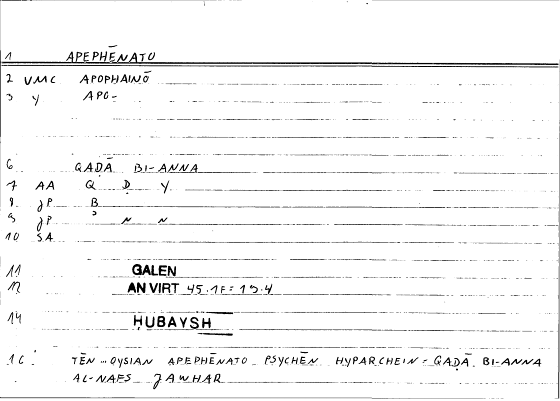 1 APEPHĒNATO
2 VMC APOPHAINŌ
3 Y APO-
6 QAḌĀ BI-ANNA
7 AA Q Ḍ Y
8 JP B
9 JP ʾ N N
10 SA
11 GALEN
12 AN VIRT 45.1F = 19.4
14 ḤUBAYSH
16. TĒN... OYSIAN APEPHĒNATO PSYCHĒN HYPARCHEIN = QAḌĀ BI-ANNA
AL-NAFS JAWHAR